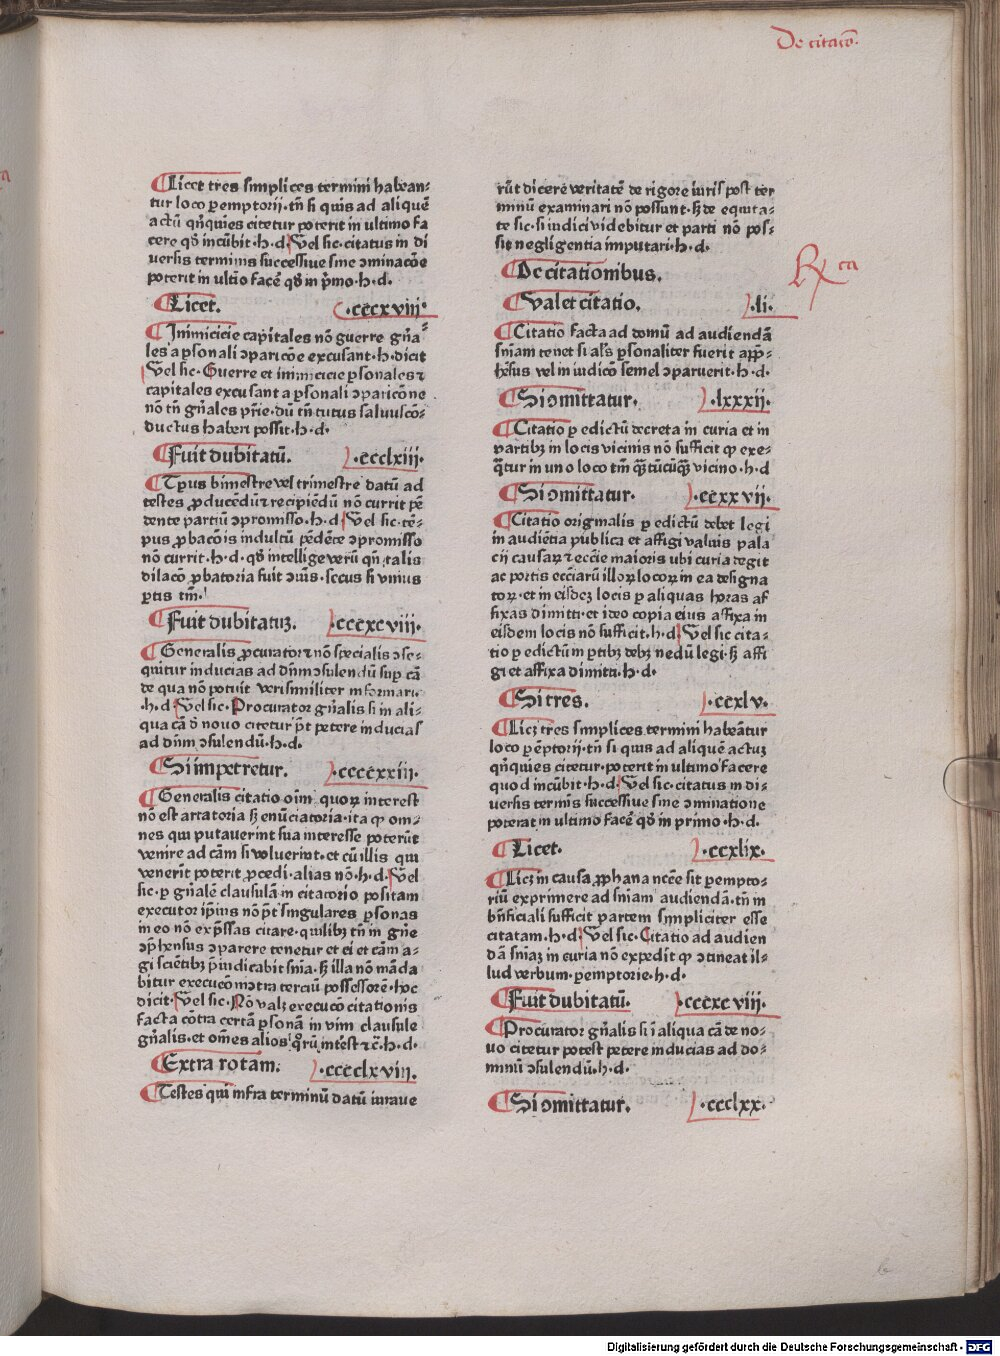 De citatiõ.
¶Licet tres simplices termini habean⸗
tur loco ꝑemptorij. tñ si quis ad aliquẽ
actũ qñquies citetur poterit in ultimo fa
cere qḋ incũbit .h.d. Uel sic. citatus in di
uersis terminis successiue sine ↄminacõe
poterit in ultĩo facẽ qḋ in p̃mo .h.d.
¶Licet. .cccxviij.
¶Inimicicie capitales nõ guerre gñа⸗
les a ꝑsonali ↄparicõe excusant .h. dicit
Uel sic. Guerre et inimicicie ꝑsonales ⁊
capitales excusant a ꝑsonali ↄparicõne
nõ tñ gñales p̃rie. dũ tñ tutus saluuscõ⸗
ductus haberi possit .h.d.
¶Fuit dubitatũ. .ccclxiij.
¶Tp̃us bimestre vel trimestre datũ ad
testes ꝓducẽdũ ⁊ recipiẽdũ nõ currit pẽ
dente partiũ ↄpromisso .h.d. Uel sic. tẽ⸗
pus ꝓbacõis indultũ pẽdẽte ↄpromisso
nõ currit .h.d. qḋ intellige verũ qñ talis
dilacõ ꝓbatoria fuit ↄĩs. secus si vnius
ꝑtis tm̃.
¶Fuit dubitatuꝫ. .cccxcviij.
¶Generalis ꝓcurator ⁊ nõ specialis ↄse⸗
quitur inducias ad dñm ↄsulendũ suꝑ cã
de qua nõ potuit verisimiliter informari.
.h.d. Uel sic. Procurator gñalis si in ali⸗
qua cã ḋ nouo citetur p̃t petere inducias
ad dñm ↄsulendũ .h.d.
¶Si impetretur. .ccccxxiij.
¶Generalis citatio oĩm quoꝝ interest
nõ est artatoria sꝫ enũciatoria. ita ꝙ om⸗
nes qui putauerint sua interesse poterũt
venire ad cãm si voluerint. et cũ illis qui
venerĩt poterit ꝓcedi. alias nõ .h.d. Uel
sic. ꝑ gñalẽ clausulã in citatorio positam
executor ip̃ius nõ p̃t singulares ꝑsonas
in eo nõ exp̃ssas citare. quilibꝫ tñ in gñe
ↄp̃hensus ↄparere tenetur et ei et cãm a⸗
gi sciẽtibꝫ p̃iudicabit snĩa. sꝫ illa nõ mãda
bitur execucõi ↄtra terciũ possessorẽ. hoc
dicit. Uel sic. Nõ valꝫ execucõ citationis
facta cõtra certã ꝑsonã in vim clausule
gñalis. et oẽs alios qͦrũ int̃est ⁊c̃ .h.d.
¶Extra rotam. .cccclxviij.
¶Testes qui infra terminũ datũ iuraue
rũt dicere veritatẽ de rigore iuris post ter
minũ examinari nõ possunt. sꝫ de equita⸗
te sic. si iudici videbitur et parti nõ pos⸗
sit negligentia imputari .h.d.
¶De citationibus. Rca
¶Ualet citatio. .li.
¶Citatio facta ad domũ ad audiendã
sñiam tenet si al̃s ꝑsonaliter fuerit app̃⸗
hẽsus vel in iudicõ semel ↄparuerit .h.d.
¶Si omittatur. .lxxxij.
¶Citatio ꝑ edictũ decreta in curia et in
partibꝫ in locis vicinis nõ sufficit ꝙ exe⸗
q̃tur in uno loco tm̃ qͣtũcũqꝫ vicino .h.d
¶Si omittatur. .ccxxvij.
¶Citatio originalis ꝑ edictũ debet legi
in audiẽtia publica et affigi valuis pala
cij causaꝝ ⁊ ecc̃ie maioris ubi curia degit
ac portis ecc̃iarũ illoꝝ locoꝝ in ea designa
toꝝ. et in eisdeꝫ locis ꝑ aliquas horas af
fixas dimitti. et ideo copia eius affixa in
eisdem locis nõ sufficit .h.d. Uel sic cita⸗
tio ꝑ edictum in ꝑtibꝫ debꝫ nedũ legi. sꝫ affi
gi et affixa dimitti .h.d.
¶Si tres. .ccxlv.
¶Licꝫ tres simplices termini habeãtur
loco ꝑẽptorij. tñ si quis ad aliquẽ actuꝫ
qñquies citetur. poterit in ultimo facere
quod incũbit .h.d. Uel sic. citatus in di⸗
uersis terminis successiue sine ↄminatione
poterat in ultimo facẽ qḋ in primo .h.d.
¶Licet. .ccxlix.
¶Licꝫ in causa ꝓphana necc̃e sit ꝑempto⸗
riũ exprimere ad sñiam audiendã. tñ in
bñficiali sufficit partem simpliciter esse
citatam .h.d. Uel sic. Citatio ad audien
dã sñiaꝫ in curia nõ expedit ꝙ ↄtineat il⸗
lud verbum. ꝑemptorie .h.d.
¶Fuit dubitatũ. .cccxcviij.
¶Procurator gñalis si ĩ aliqua cã de no⸗
uo citetur potest petere inducias ad do⸗
minũ ↄsulendũ .h.d.
¶Si omittatur. .ccclxx.
Digitalisierung gefördert durch die Deutsche Forschungsgemeinschaft - DFG